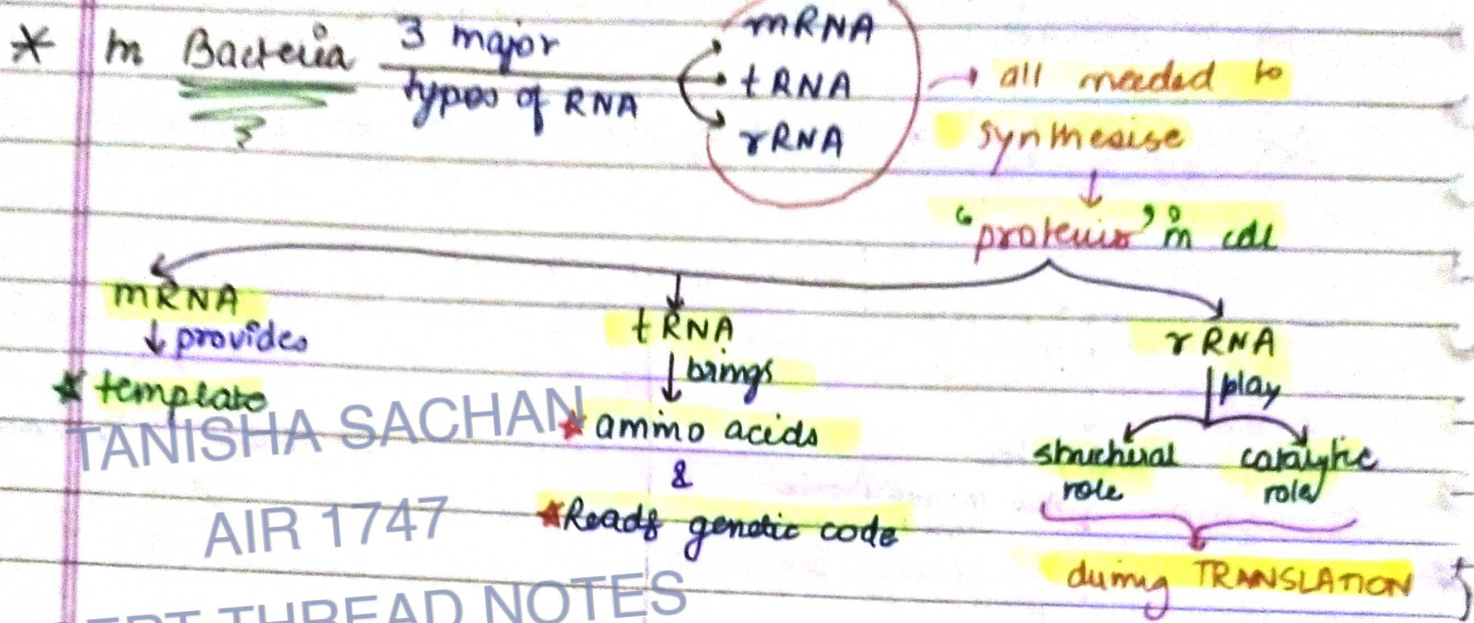 * In Bacteria 3 major types of RNA
mRNA
tRNA
rRNA
→ all needed to
synthesise
↓
"proteins" in cell
mRNA
↓ provides
★ template
tRNA
↓ brings
★ amino acids
&
★ Reads genetic code
rRNA
play
structural role
catalytic role
during TRANSLATION
TANISHA SACHAN
AIR 1747
THREAD NOTES